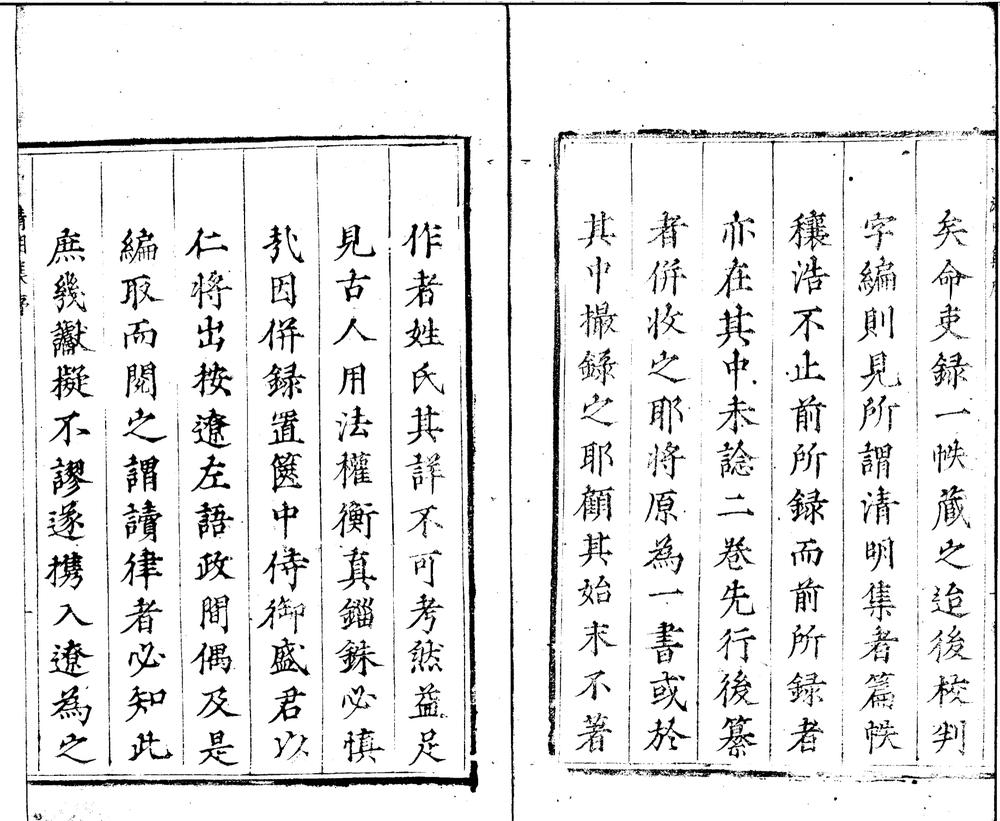 矣命吏録一帙藏之迨後校判
字編則見所謂清明集者篇帙
穰浩不止前所録而前所録者
亦在其中未諗二卷先行後纂
者併收之耶將原為一書或於
其中撮録之耶顧其始末不著
作者姓氏其詳不可考然益足
見古人用法權衡真錙銖必慎
㦲因併録置篋中侍御盛君以
仁將出按遼左語政間偶及是
編取而閱之謂讀律者必知此
庶幾讞擬不謬遂攜入遼為之
清明集序